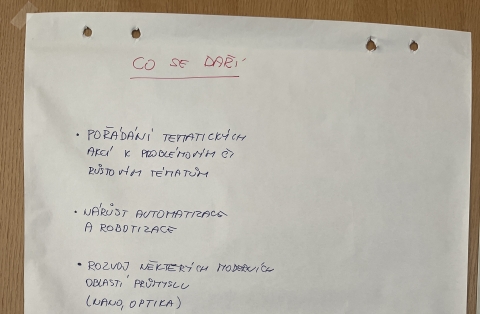 CO SE DAŘÍ
• POŘÁDÁNÍ TEMATICKÝCH
AKCÍ K PROBLÉMOVÝM ČI
RŮSTOVÝM TÉMATŮM
• NÁRŮST AUTOMATIZACE
A ROBOTIZACE
• ROZVOJ NĚKTERÝCH MODERNÍCH
OBLASTÍ PRŮMYSLU
(NANO, OPTIKA)